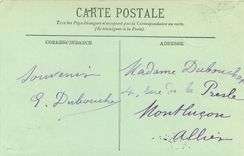 CARTE POSTALE
Tous les Pays étrangers n'acceptent pas la Correspondance au recto.
(Se renseigner à la Poste).
CORRESPONDANCE
ADRESSE
Souvenir
G. Dubouche
Madame Dubouchap
4 rue de la Presle
Montluçon
Allier